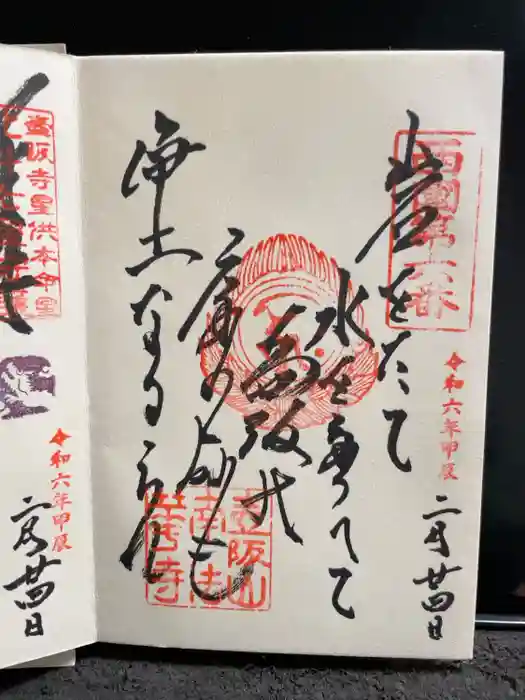 西國第六番
令和六年甲辰
二月廿四日
岩をたて
水をたゝへて
壺阪の
庭のいさごも
浄土なるらん
壺阪山
南法
華寺
壺阪寺星供本命星
令和六年甲辰
二月廿四日